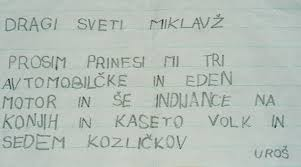 DRAGI SVETI MIKLAVŽ
PROSIM PRINESI MI TRI
AVTOMOBILČKE IN EDEN
MOTOR IN ŠE INDIJANCE NA
KONJIH IN KASETO VOLK IN
SEDEM KOZLIČKOV
UROŠ